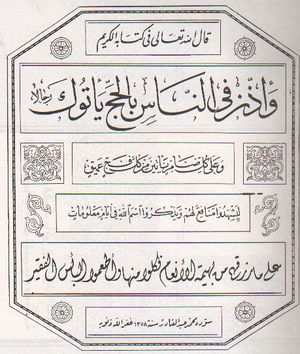 قال الله تعالى فى كتابه الكريم
وأذن فى الناس بالحج يأتوك رجالا
وعلى كل ضامر يأتين من كل فج عميق
ليشهدوا منافع لهم ويذكروا اسم الله فى أيام معلومات
على ما رزقهم من بهيمة الأنعام فكلوا منها وأطعموا البائس الفقير
سوده محمد عبد القادر سنة ١٣٥٨ غفر الله ذنوبه